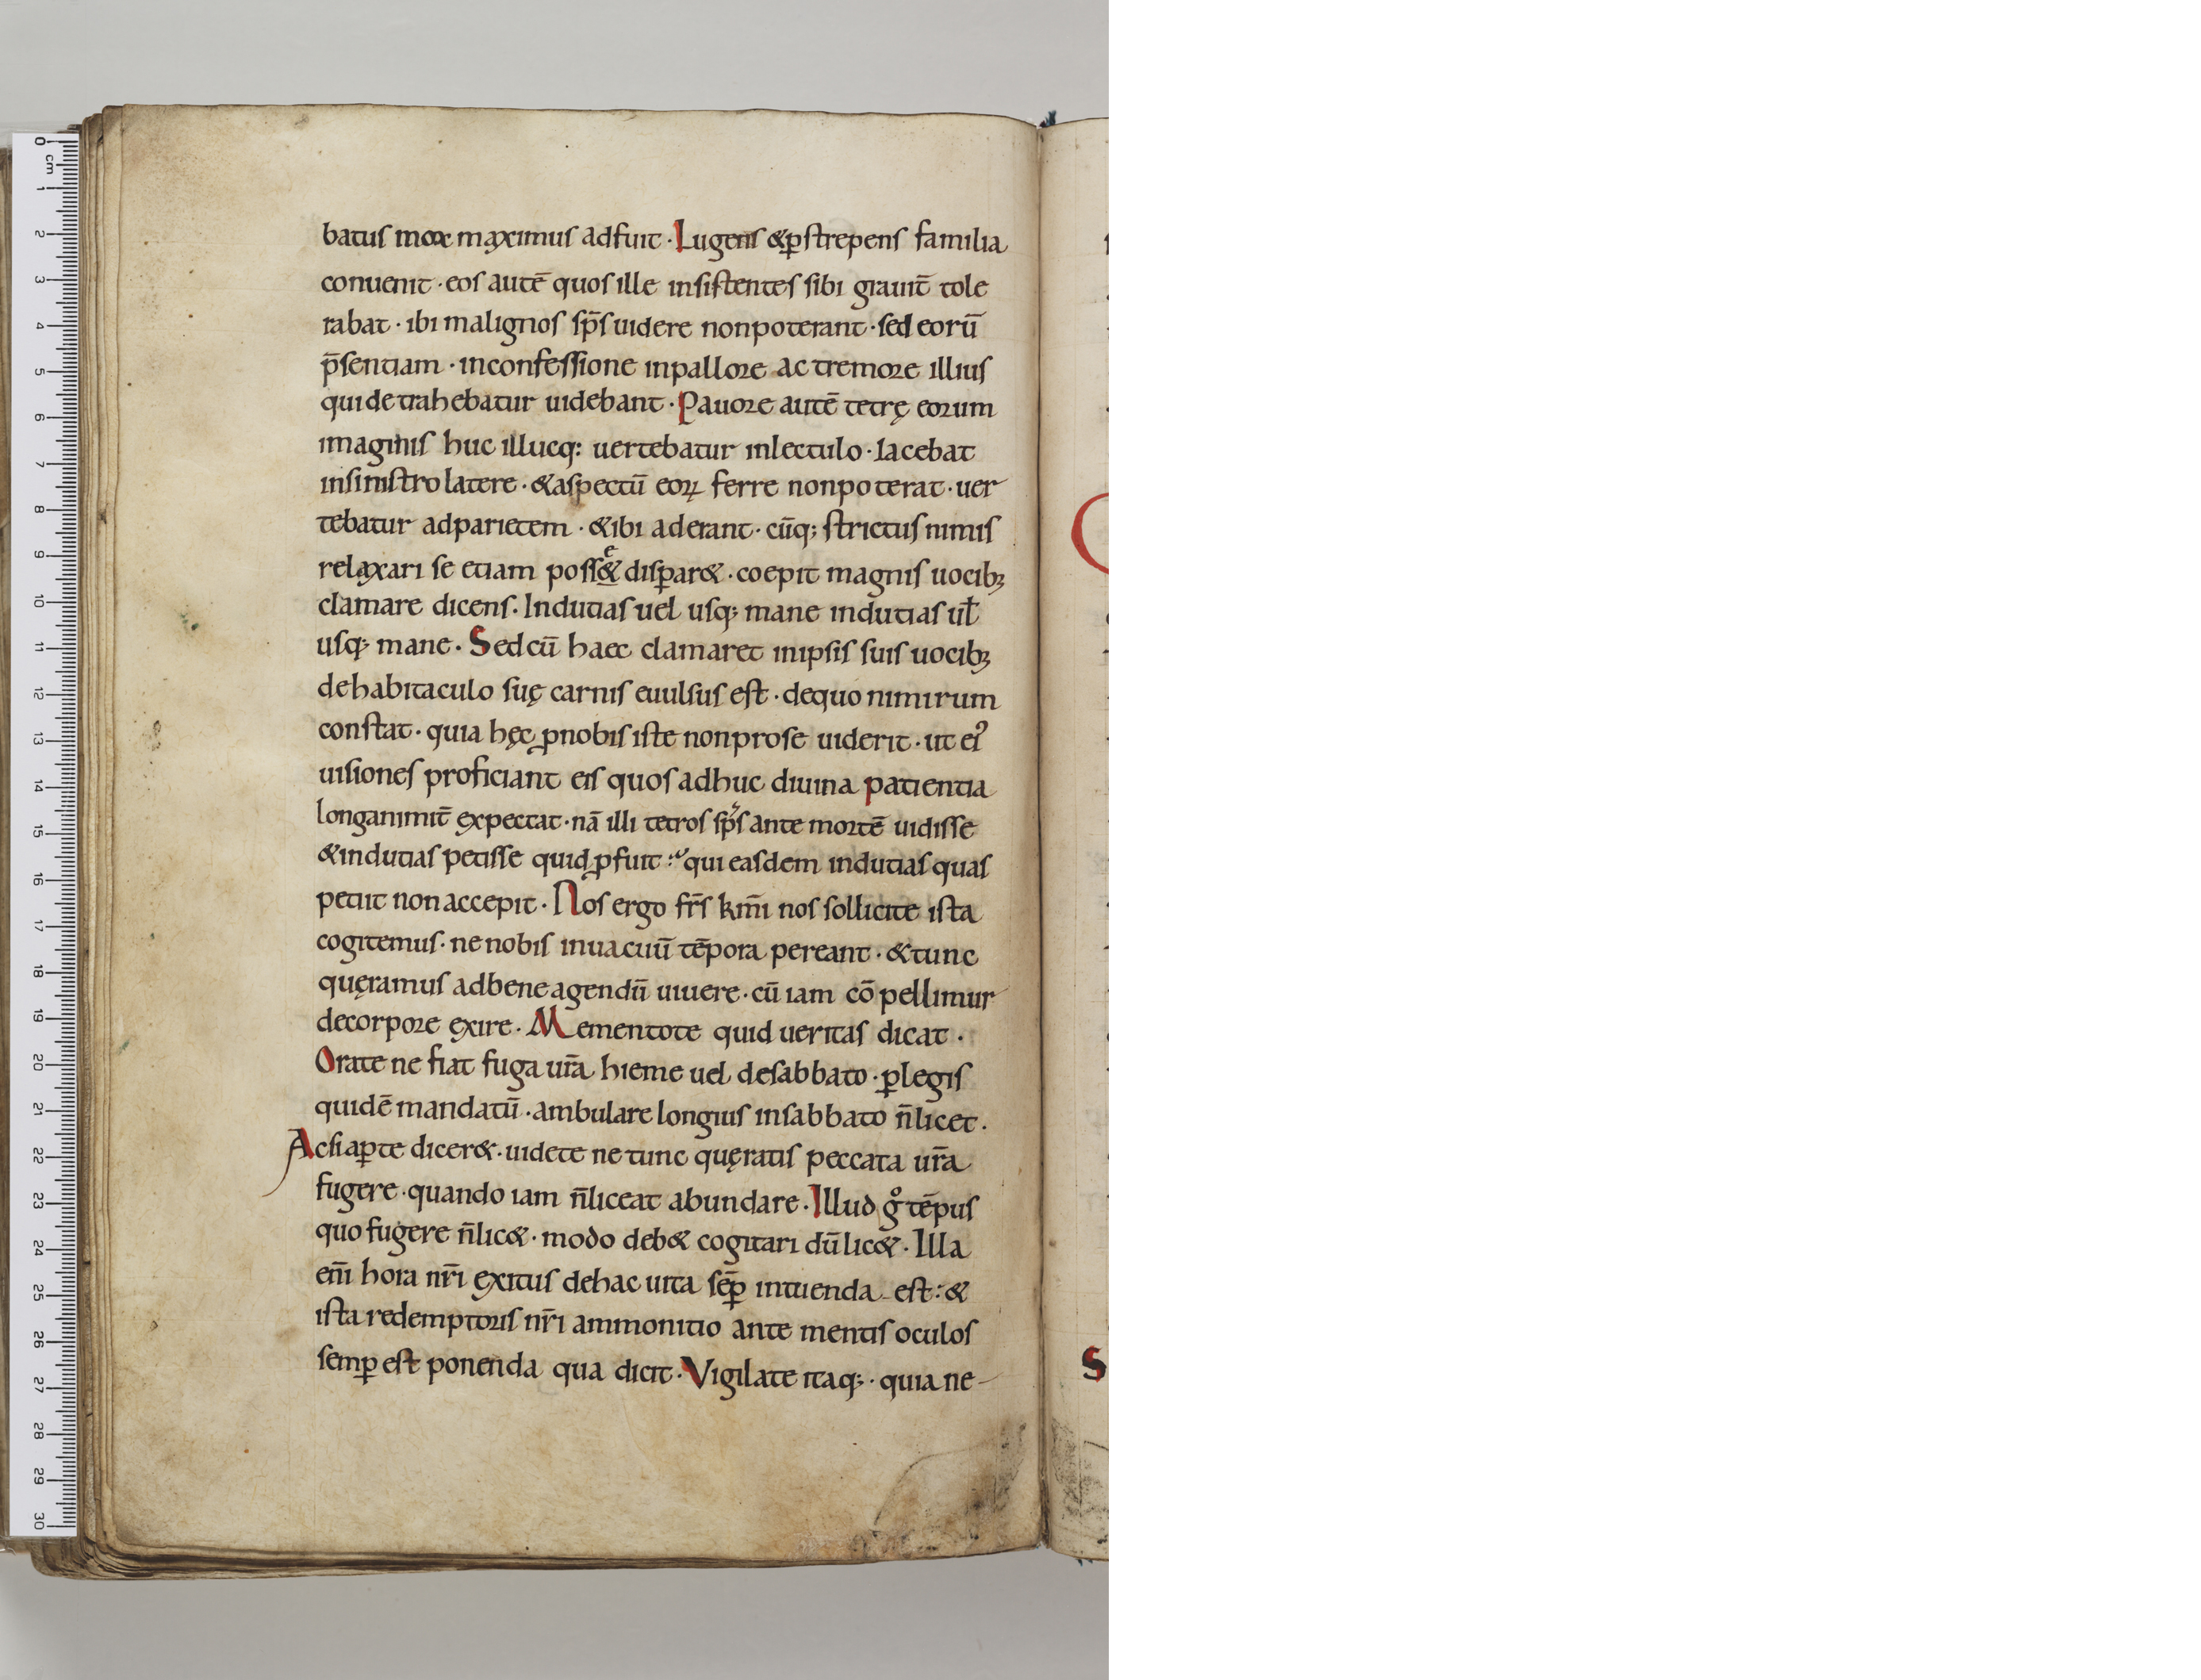 batus mox maximus adfuit · Lugens &ꝑstrepens familia
conuenit · eos autē quos ille insistentes sibi grauit̄ tole
rabat · ibi malignos sp̄s uidere nonpoterant · sed eorū
p̄sentiam · inconfessione inpallore ac tremore illius
qui detrahebatur uidebant · Pauore autē tetrę eorum
imaginis huc illucq: uertebatur inlectulo · Iacebat
insinistro latere · &aspectū eoꝝ ferre nonpoterat · uer
tebatur adparietem · &ibi aderant · cūq; strictus nimis
relaxari se etiam poss&̣ e disꝑar& · coepit magnis uocibꝫ
clamare dicens · Indutias uel usq; mane indutias ul̄
usq; mane · Sed cū haec clamaret inipsis suis uocibꝫ
dehabitaculo suę carnis euulsus est · dequo nimirum
constat · quia hęc ꝓnobis iste nonprose uiderit · ut eiꝰ
uisiones proficiant eis quos adhuc diuina patientia
longanimit̄ expectat · nā illi tetros sp̄s ante mortē uidisse
&indutias petisse quid ꝓfuit : qui easdem indutias quas
petiit non accepit · Nos ergo fr̄s km̄i nos sollicite ista
cogitemus · ne nobis inuacuū tēpora pereant · &tunc
quęramus adbene agendū uiuere · cū iam cō pellimur
decorpore exire · Mementote quid ueritas dicat ·
Orate ne fiat fuga ur̄a hieme uel desabbato · ꝑlegis
quidē mandatū · ambulare longius insabbato n̄licet ·
Acsiaꝑte dicer& · uidete ne tunc quęratis peccata ur̄a
fugere · quando iam n̄liceat abundare · Illud gͦ tēpus
quo fugere n̄lic& · modo deb& cogitari dū lic& · Illa
eni̅ hora nr̄i exitus dehac uita sēꝑ intuenda est: &
ista redemptoris nr̄i ammonitio ante mentis oculos
semꝑ est ponenda qua dicit · Vigilate itaq; · quia ne-
S